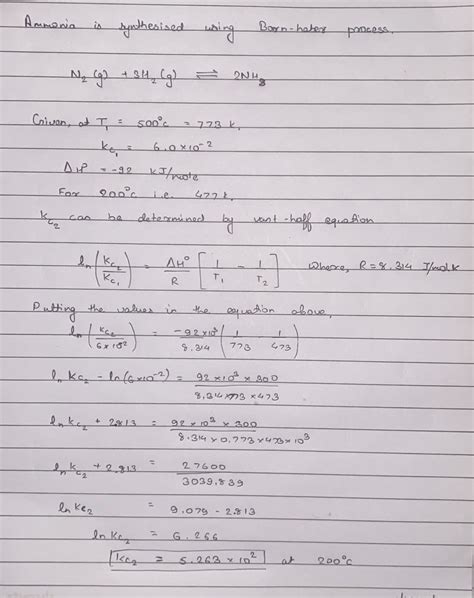 Ammonia is synthesised using Born-haber process.
N₂(g) + 3H₂(g) ⇌ 2NH₃
Given, at T₁ = 500°c = 773 k,
Kc₁ = 6.0×10⁻²
ΔH° = -92 kJ/mole
For 200°c i.e. 477k,
Kc₂ can be determined by vant-haff equation
ln(Kc₂/Kc₁) = ΔH°/R [1/T₁ - 1/T₂] Where, R=8.314 J/mol.K
Putting the values in the equation above,
ln(Kc₂/6×10²) = -92×10³/8.314 (1/773 - 1/473)
ln Kc₂ - ln(6×10⁻²) = 92×10³×300/8.314×773×473
ln Kc₂ + 2.813 = 92×10³×300/8.314×0.773×473×10³
ln Kc₂ + 2.813 = 27600/3039.839
ln Kc₂ = 9.079 - 2.813
ln Kc₂ = 6.266
Kc₂ = 5.263×10² at 200°c